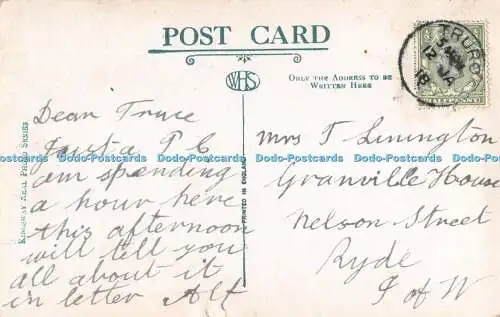 POST CARD
WHS
ONLY THE ADDRESS TO BE
WRITTEN HERE
TRURO
HALFPENNY
KINGSWAY REAL PHOTO SERIES
PRINTED IN ENGLAND
Dear Truce
Just a P C
am spending
a hour here
this afternoon
will tell you
all about it
in letter Alf
Mrs T Linington
Granville House
Nelson Street
Ryde
I of W
Dodo-Postcards Dodo-Postcards Dodo-Postcards Dodo-Postcards Dodo-Postcards Dodo-Postcards